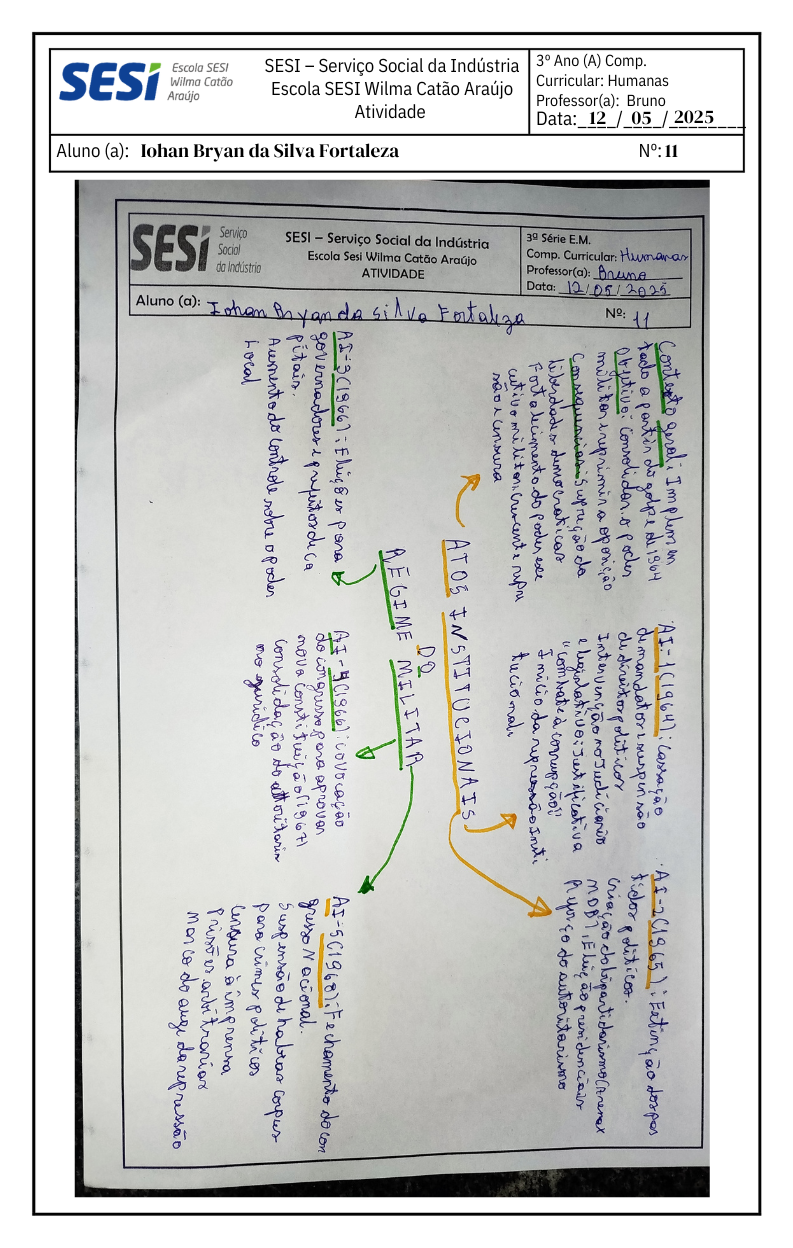 SESI
Escola SESI
Wilma Catão
Araújo
SESI – Serviço Social da Indústria
Escola SESI Wilma Catão Araújo
Atividade
3º Ano (A) Comp.
Curricular: Humanas
Professor(a): Bruno
Data: 12 / 05 / 2025
Aluno (a): Iohan Bryan da Silva Fortaleza
Nº: 11
SESI
Serviço
Social
da Indústria
SESI – Serviço Social da Indústria
Escola Sesi Wilma Catão Araújo
ATIVIDADE
3ª Série E.M.
Comp. Curricular: Humanas
Professor(a): Bruno
Data: 12/05/2025
Aluno (a): Iohan Bryan da Silva Fortaleza
Nº: 11
Contexto geral: Implemen
tado a partir do golpe de 1964
Objetivo: Consolidar o poder
militar e reprimir a oposição
Consequencias: Supreção da
liberdades democraticas
Fortalecimento do poder exe
cutivo militar; Crescente repre
são e censura
AI-1(1964): Cassação
de mandatos e suspensão
de direitos politicos
Intervenção no Judiciario
e legislativo; Justificativa
"combate à corrupção";
Inicio da repressão Insti
tucional;
AI-2(1965): Extinção dos par
tidos politicos.
Criação do bipartidarismo (Arena x
MDB); Eleição presidenciais
Reforço do autoritarismo
ATOS INSTITUCIONAIS
DO
REGIME MILITAR
AI-3(1966): Eleições para
governadores e prefeitos de ca
pitais.
Aumento do controle sobre o poder
Local
AI-4(1966): covocação
do congresso para aprovar
nova constituição (1967)
Consolidação do autoritaris
mo juridico
AI-5(1968): Fechamento do con
gresso Nacional.
Suspensão de habeas corpus
para crimes politicos
Censura à imprensa
Prisões arbitrarias
marco do auge da repressão